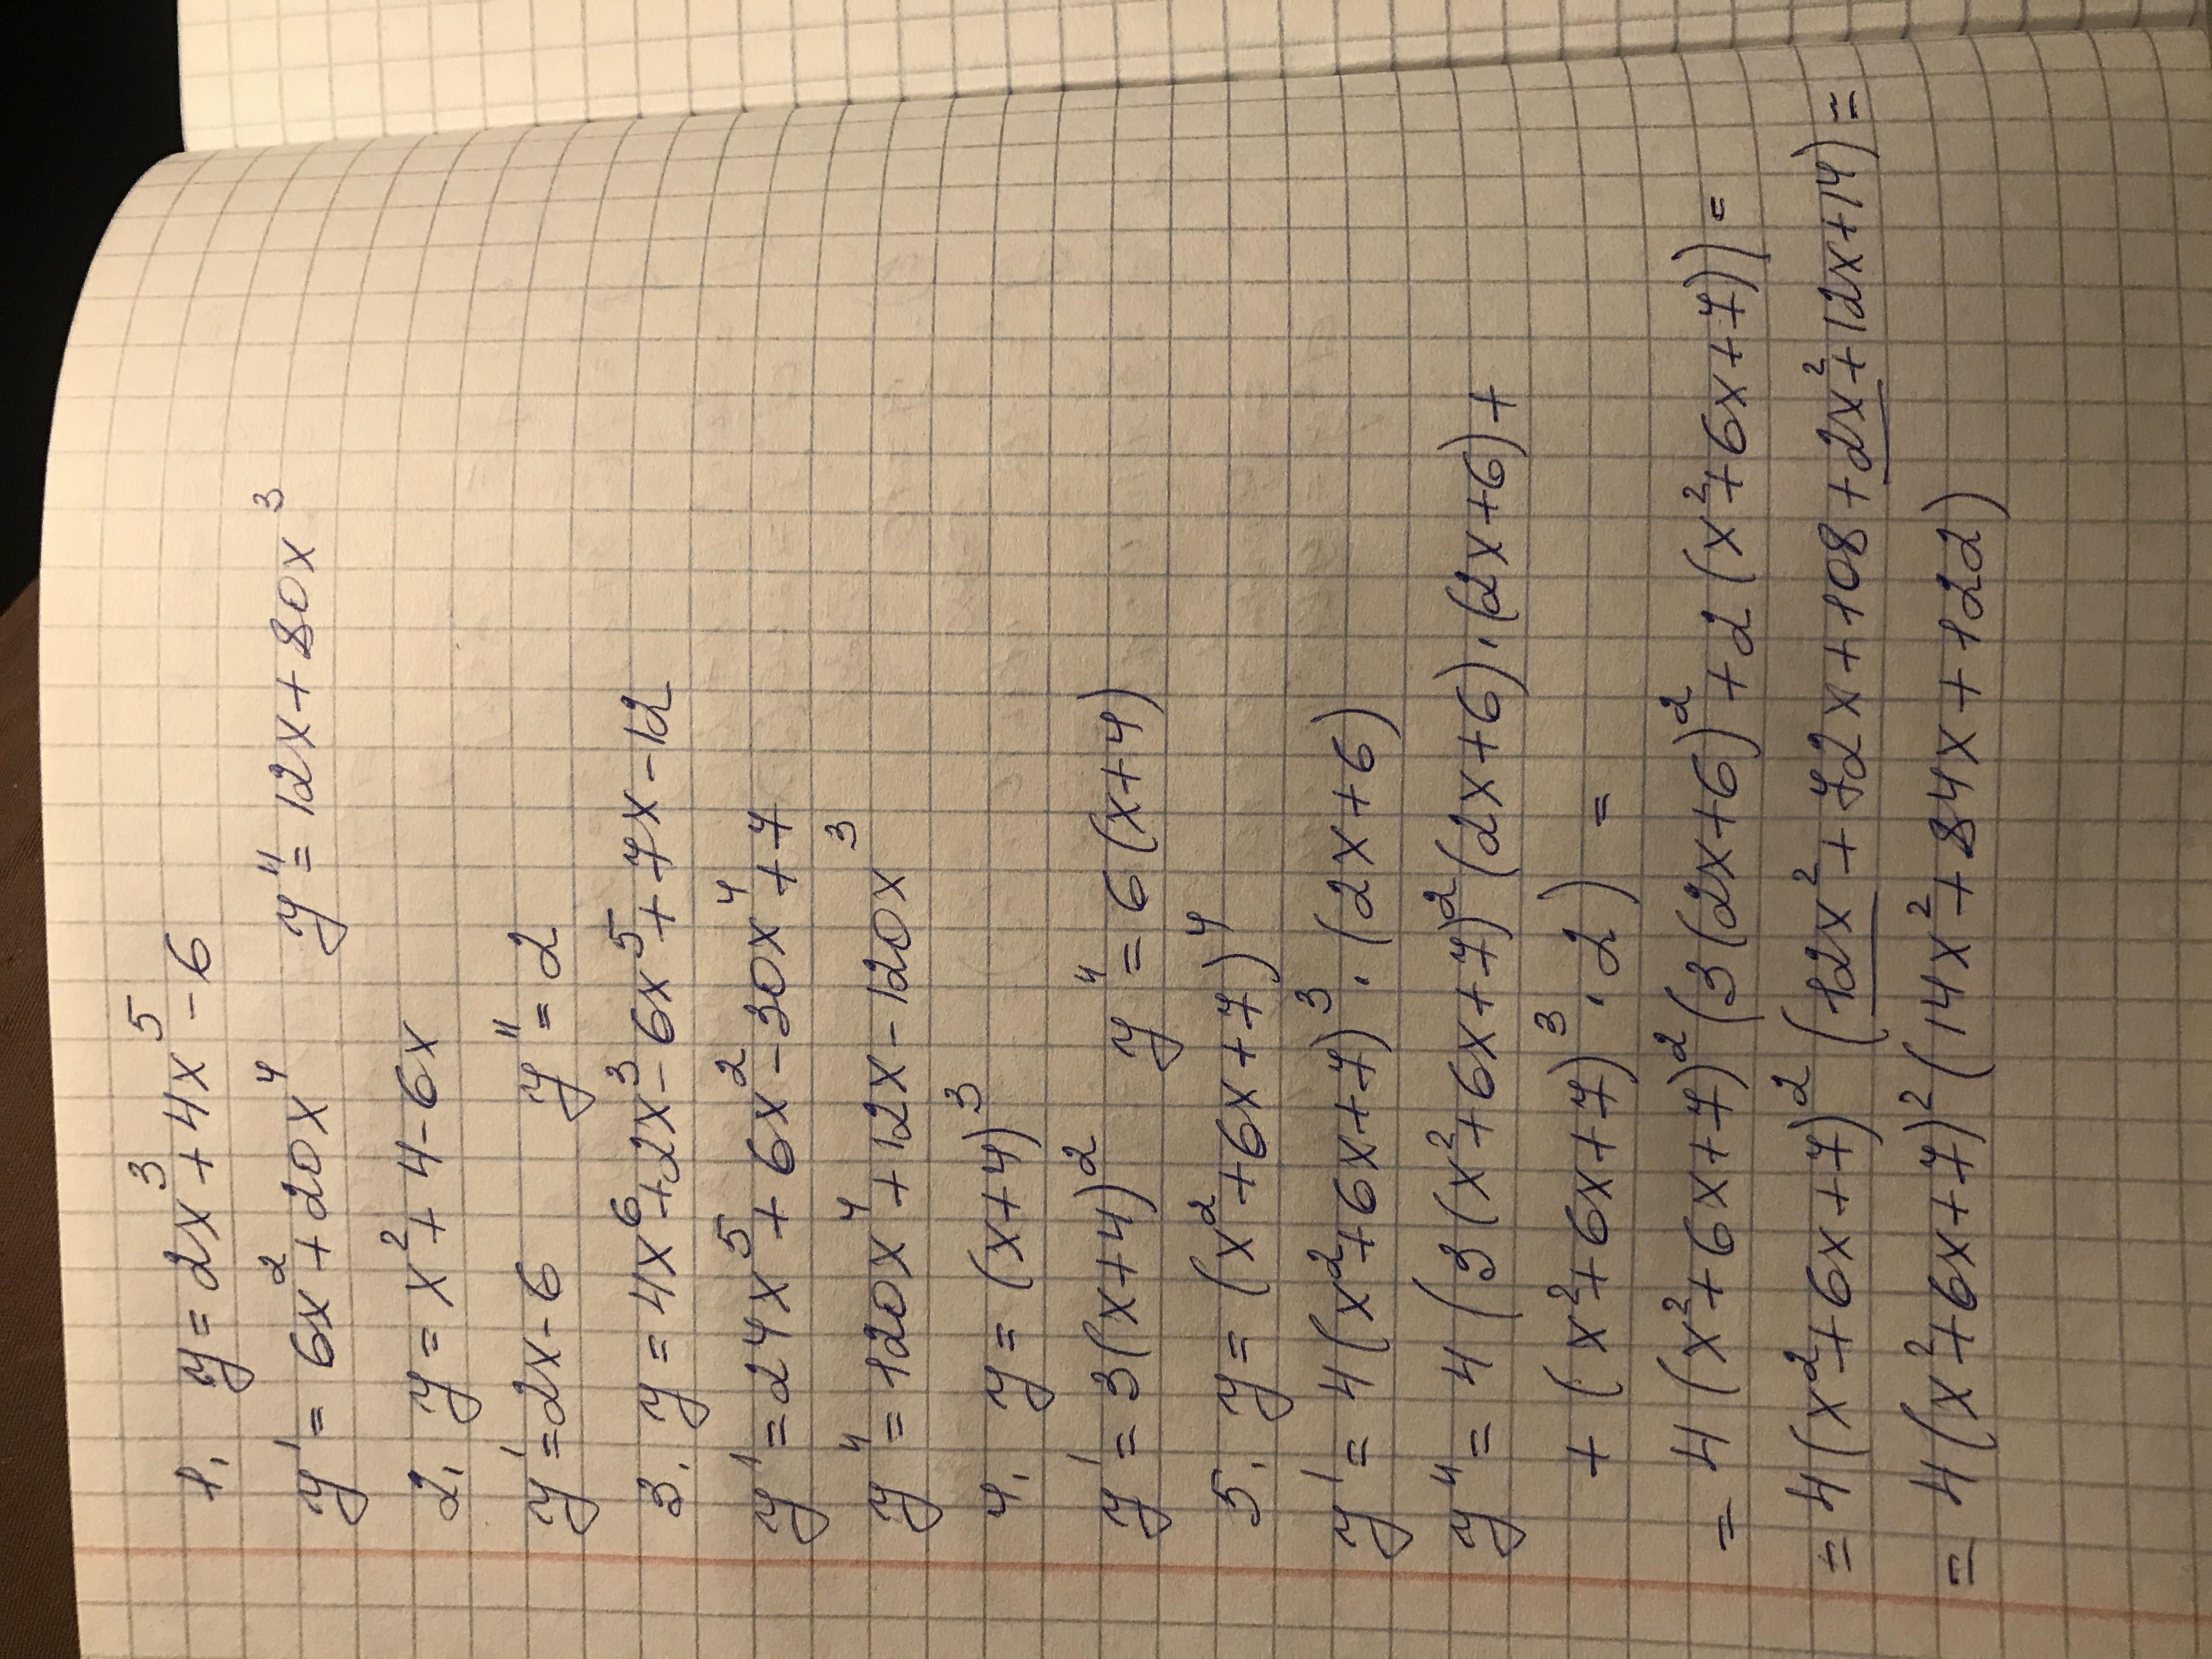 1. y = 2x³ + 4x⁵ - 6
y' = 6x² + 20x⁴ y'' = 12x + 80x³
2. y = x² + 4 - 6x
y' = 2x - 6 y'' = 2
3. y = 4x⁶ + 2x³ - 6x⁵ + 7x - 12
y' = 24x⁵ + 6x² - 30x⁴ + 7
y'' = 120x⁴ + 12x - 120x³
4. y = (x+4)³
y' = 3(x+4)² y'' = 6(x+4)
5. y = (x² + 6x + 7)⁴
y' = 4(x² + 6x + 7)³ · (2x+6)
y'' = 4(3(x² + 6x + 7)² (2x+6) · (2x+6) +
+ (x² + 6x + 7)³ · 2) =
= 4(x² + 6x + 7)² (3(2x+6)² + 2(x² + 6x + 7)) =
= 4(x² + 6x + 7)² (12x² + 72x + 108 + 2x² + 12x + 14) =
= 4(x² + 6x + 7)² (14x² + 84x + 122)